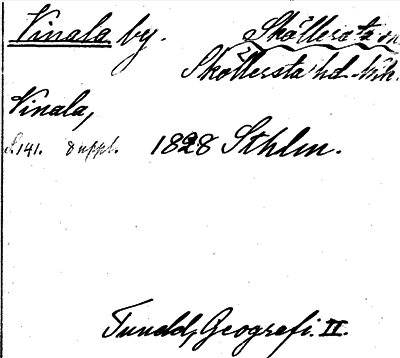 Vinala by. Sköllersta sn
Sköllersta hd
Vinala,
s. 141. Suppl. 1828 Sthlm.
Tuneld, Geografi. II.